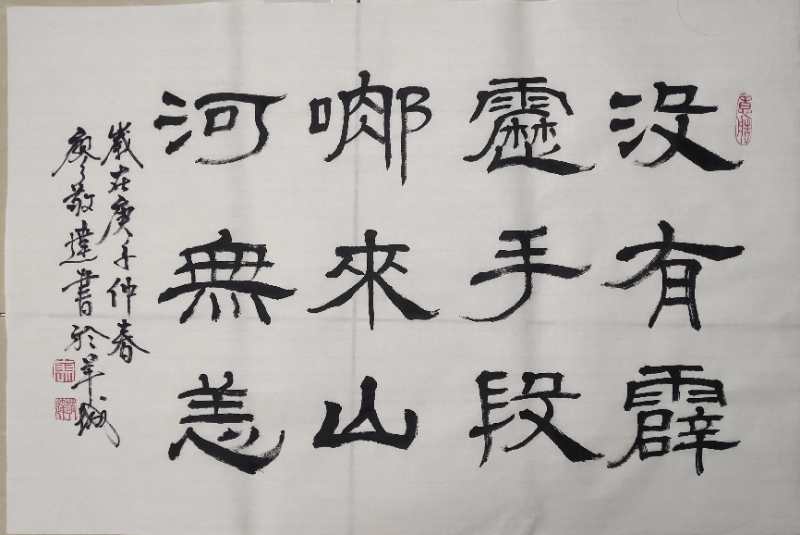 没有霹
靂手段
哪來山
河無恙
歲在庚子仲春
廖敬達書於羊城